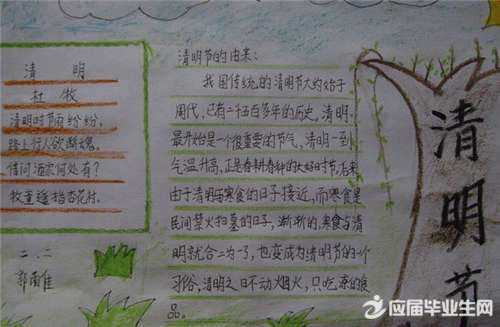 清 明
杜 牧
清明时节雨纷纷,
路上行人欲断魂。
借问酒家何处有?
牧童遥指杏花村。
二.二
清明节的由来:
我国传统的清明节大约始于
周代,已有二千五百多年的历史,清明
最开始是一个很重要的节气,清明一到
气温升高,正是春耕春种的大好时节,后来
由于清明与寒食的日子接近,而寒食是
民间禁火扫墓的日子,渐渐的,寒食与清
明就合二为一了,也变成为清明节的一个
习俗,清明之日不动烟火,只吃凉的食
品。
清明节
应届毕业生网